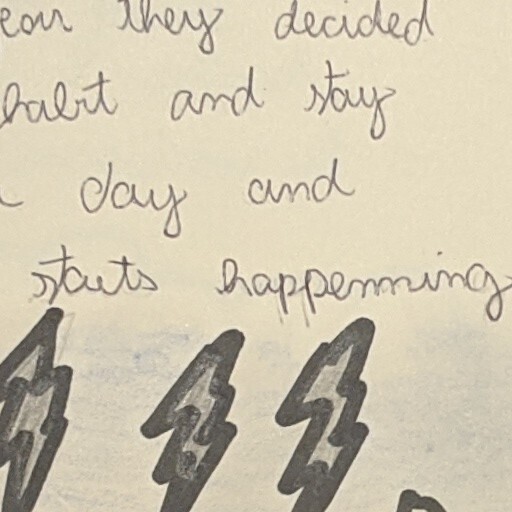 they decided
habit and stay
day and
starts happenning